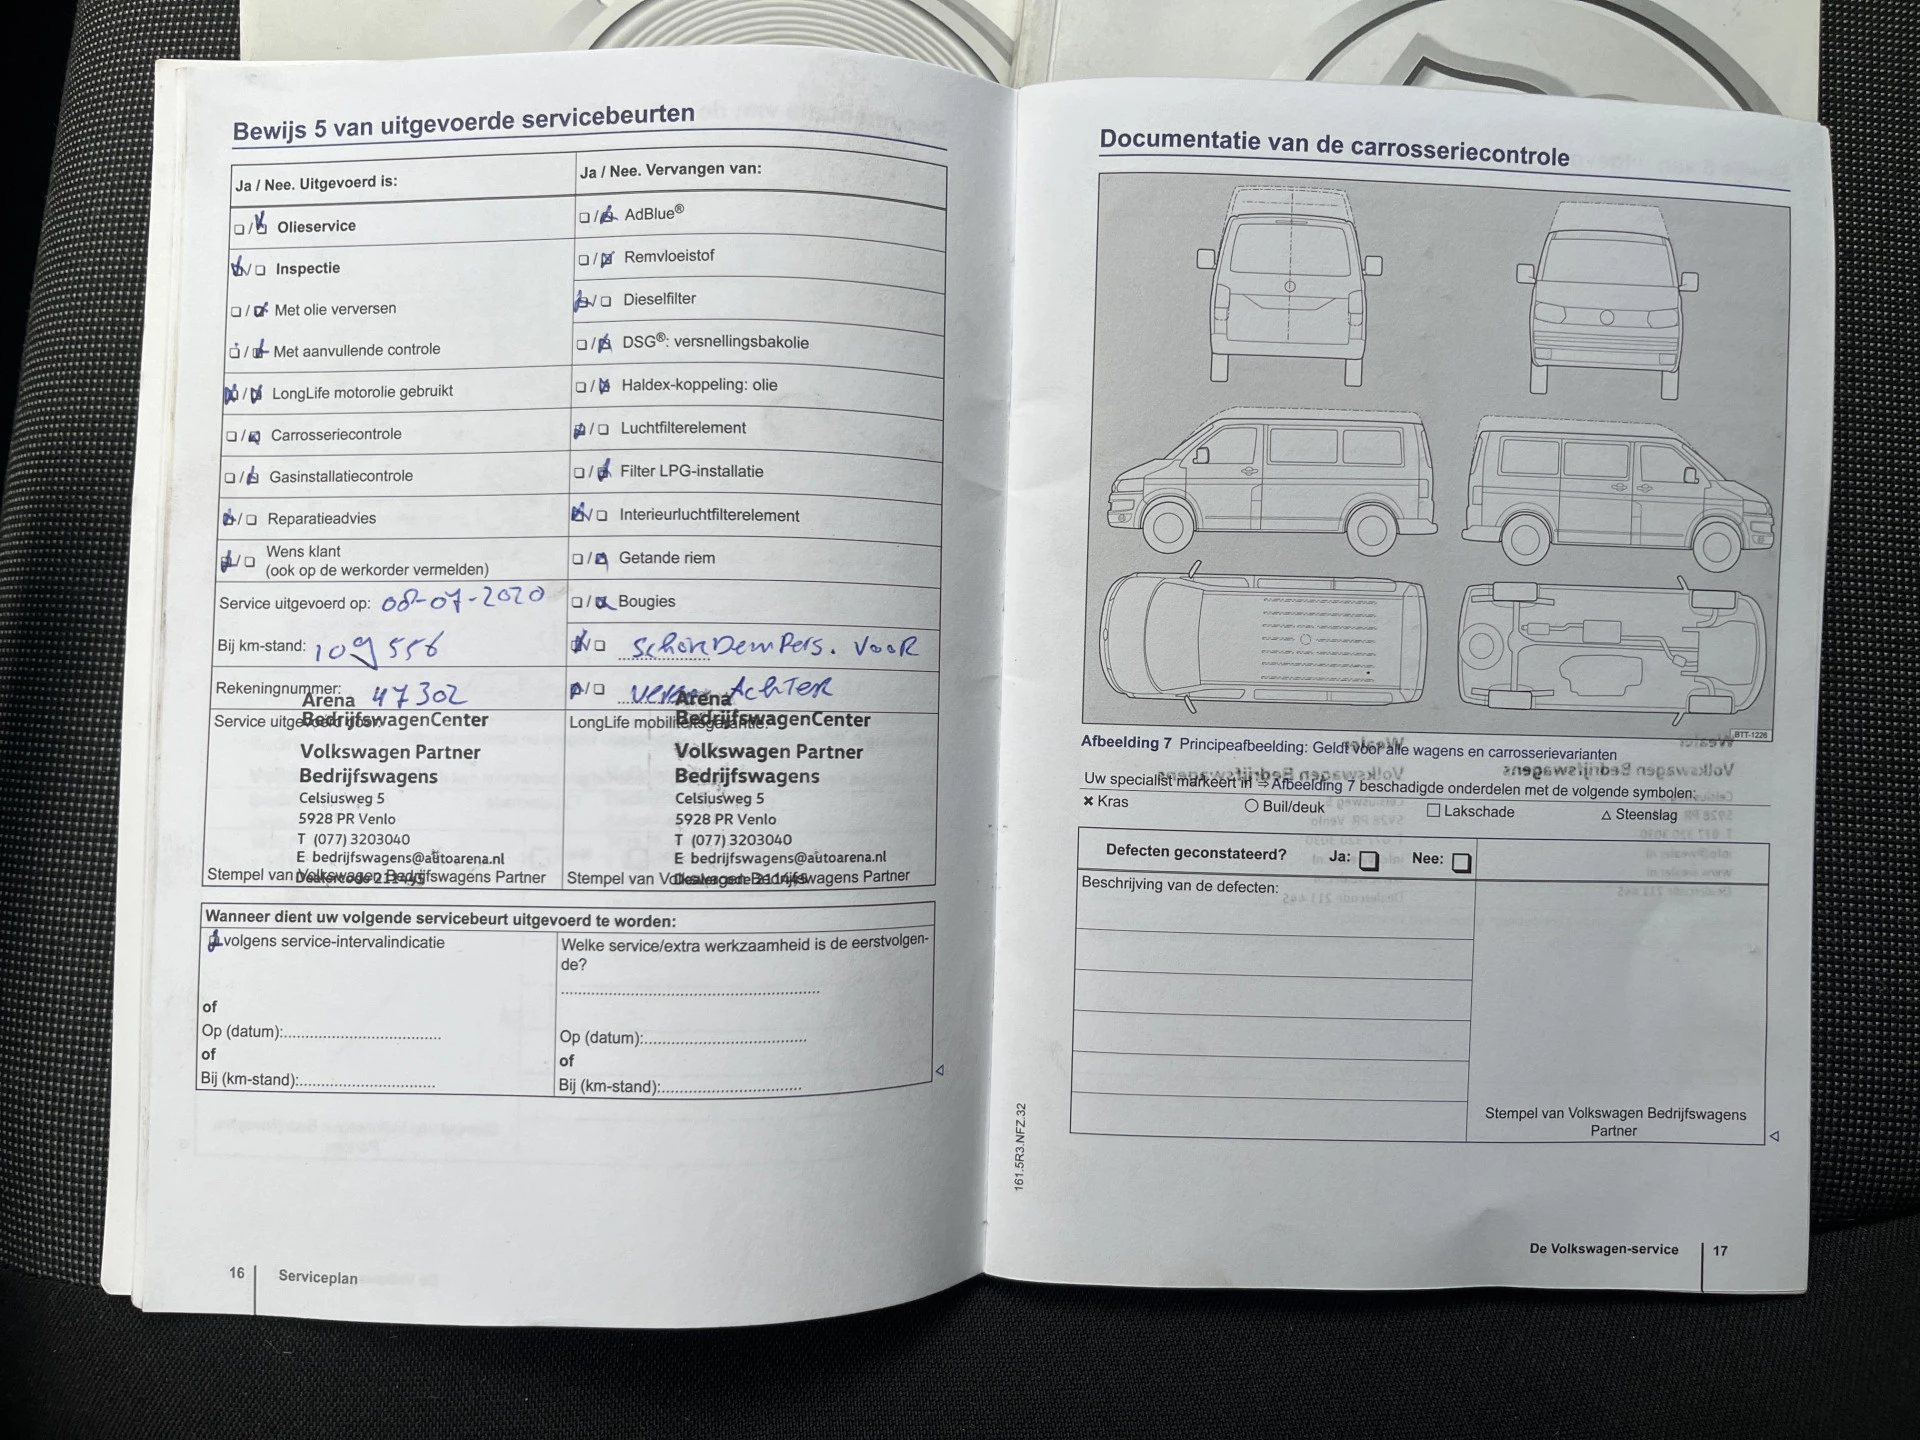 Bewijs 5 van uitgevoerde servicebeurten
Ja / Nee. Uitgevoerd is:
Olieservice
Inspectie
Met olie verversen
Met aanvullende controle
LongLife motorolie gebruikt
Carrosseriecontrole
Gasinstallatiecontrole
Reparatieadvies
Wens klant
(ook op de werkorder vermelden)
Service uitgevoerd op: 08-07-2020
Bij km-stand: 109556
Rekeningnummer: 47302
Service uitgevoerd door:
Arena
BedrijfswagenCenter
Volkswagen Partner
Bedrijfswagens
Celsiusweg 5
5928 PR Venlo
T (077) 3203040
E bedrijfswagens@autoarena.nl
Dealercode 211445
Stempel van Volkswagen Bedrijfswagens Partner
Ja / Nee. Vervangen van:
AdBlue®
Remvloeistof
Dieselfilter
DSG®: versnellingsbakolie
Haldex-koppeling: olie
Luchtfilterelement
Filter LPG-installatie
Interieurluchtfilterelement
Getande riem
Bougies
SchokDempers. VooR
AchTER
LongLife mobiliteitsgarantie:
Arena
BedrijfswagenCenter
Volkswagen Partner
Bedrijfswagens
Celsiusweg 5
5928 PR Venlo
T (077) 3203040
E bedrijfswagens@autoarena.nl
Dealercode 211445
Stempel van Volkswagen Bedrijfswagens Partner
Wanneer dient uw volgende servicebeurt uitgevoerd te worden:
volgens service-intervalindicatie
of
Op (datum):
of
Bij (km-stand):
Welke service/extra werkzaamheid is de eerstvolgen-
de?
Op (datum):
of
Bij (km-stand):
16 Serviceplan
Documentatie van de carrosseriecontrole
BTT-1226
Afbeelding 7 Principeafbeelding: Geldt voor alle wagens en carrosserievarianten
Uw specialist markeert in ⇒Afbeelding 7 beschadigde onderdelen met de volgende symbolen:
× Kras ○ Buil/deuk □ Lakschade △ Steenslag
Defecten geconstateerd? Ja: Nee:
Beschrijving van de defecten:
Stempel van Volkswagen Bedrijfswagens
Partner
161.5R3.NFZ.32
De Volkswagen-service 17